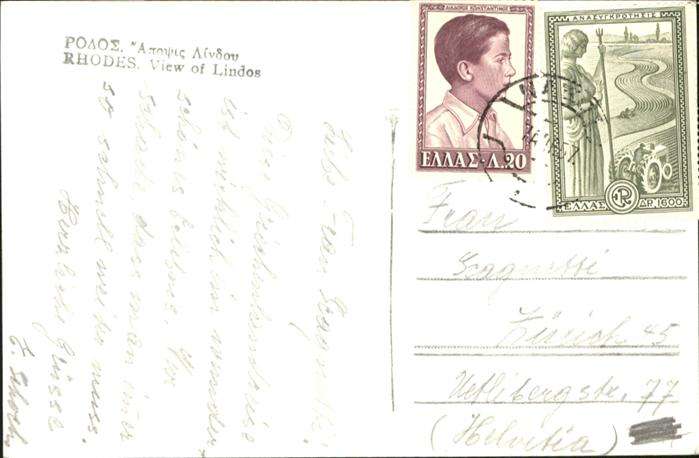 ΡΟΔΟΣ. Ἄποψις Λίνδου
RHODES. View of Lindos
ΔΙΑΔΟΧΟΣ ΚΩΝΣΤΑΝΤΙΝΟΣ
ΕΛΛΑΣ·Λ.20
ΑΝΑΣΥΓΚΡΟΤΗΣΙΣ
ΕΛΛΑΣ
ΔΡ. 1600
Liebe Frau
Diese Griechenlandreise
ist wirklich ein wunder-
schönes Erlebnis. Nur
schade, dass man immer
so schnell weiter muss.
Herzliche Grüsse
Frau
Zürich 45
Uetlibergstr. 77
(Helvetia)